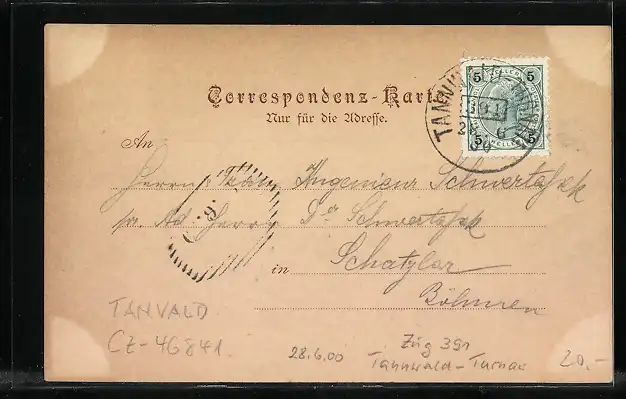 Correspondenz-Karte
Nur für die Adresse.
An
Herrn Ingenieur Schwertassek
pr. Ad. Herrn Dr Schwertassek
in Schatzlar
Böhmen
5 5
5 5
TANVALD
CZ-46841
28.6.00
Zug 391
Tannwald-Turnau
20.-